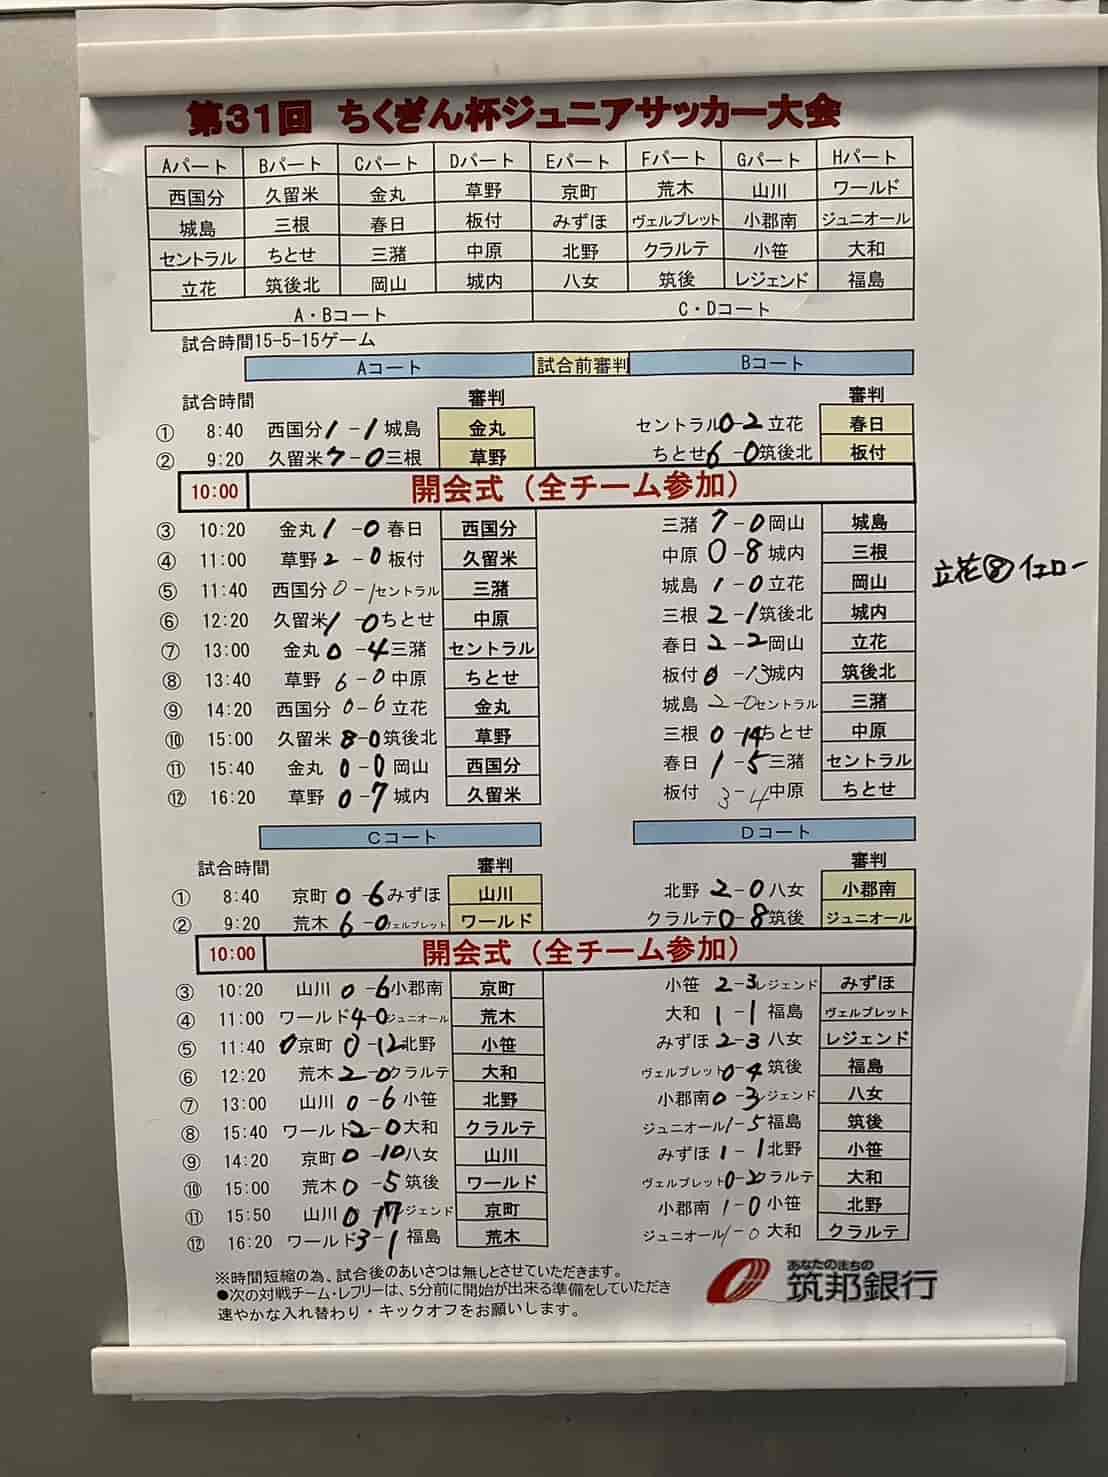 第31回 ちくぎん杯ジュニアサッカー大会
Aパート Bパート Cパート Dパート Eパート Fパート Gパート Hパート
西国分 久留米 金丸 草野 京町 荒木 山川 ワールド
城島 三根 春日 板付 みずほ ヴェルブレット 小郡南 ジュニオール
セントラル ちとせ 三潴 中原 北野 クラルテ 小笹 大和
立花 筑後北 岡山 城内 八女 筑後 レジェンド 福島
A・Bコート C・Dコート
試合時間15-5-15ゲーム
Aコート 試合前審判 Bコート
試合時間 審判 審判
① 8:40 西国分 1 - 1 城島 金丸 セントラル 0 - 2 立花 春日
② 9:20 久留米 7 - 0 三根 草野 ちとせ 6 - 0 筑後北 板付
10:00 開会式(全チーム参加)
③ 10:20 金丸 1 - 0 春日 西国分 三潴 7 - 0 岡山 城島
④ 11:00 草野 2 - 0 板付 久留米 中原 0 - 8 城内 三根
立花⑧イエロー
⑤ 11:40 西国分 0 - 1 セントラル 三潴 城島 1 - 0 立花 岡山
⑥ 12:20 久留米 1 - 0 ちとせ 中原 三根 2 - 1 筑後北 城内
⑦ 13:00 金丸 0 - 4 三潴 セントラル 春日 2 - 2 岡山 立花
⑧ 13:40 草野 6 - 0 中原 ちとせ 板付 0 - 13 城内 筑後北
⑨ 14:20 西国分 0 - 6 立花 金丸 城島 2 - 0 セントラル 三潴
⑩ 15:00 久留米 8 - 0 筑後北 草野 三根 0 - 14 ちとせ 中原
⑪ 15:40 金丸 0 - 0 岡山 西国分 春日 1 - 5 三潴 セントラル
⑫ 16:20 草野 0 - 7 城内 久留米 板付 3 - 4 中原 ちとせ
Cコート Dコート
試合時間 審判 審判
① 8:40 京町 0 - 6 みずほ 山川 北野 2 - 0 八女 小郡南
② 9:20 荒木 6 - 0 ヴェルブレット ワールド クラルテ 0 - 8 筑後 ジュニオール
10:00 開会式(全チーム参加)
③ 10:20 山川 0 - 6 小郡南 京町 小笹 2 - 3 レジェンド みずほ
④ 11:00 ワールド 4 - 0 ジュニオール 荒木 大和 1 - 1 福島 ヴェルブレット
⑤ 11:40 0 京町 0 - 12 北野 小笹 みずほ 2 - 3 八女 レジェンド
⑥ 12:20 荒木 2 - 0 クラルテ 大和 ヴェルブレット 0 - 4 筑後 福島
⑦ 13:00 山川 0 - 6 小笹 北野 小郡南 0 - 3 レジェンド 八女
⑧ 15:40 ワールド 2 - 0 大和 クラルテ ジュニオール 1 - 5 福島 筑後
⑨ 14:20 京町 0 - 10 八女 山川 みずほ 1 - 1 北野 小笹
⑩ 15:00 荒木 0 - 5 筑後 ワールド ヴェルブレット 0 - 2 クラルテ 大和
⑪ 15:50 山川 0 - 17 レジェンド 京町 小郡南 1 - 0 小笹 北野
⑫ 16:20 ワールド 3 - 1 福島 荒木 ジュニオール 1 - 0 大和 クラルテ
※時間短縮の為、試合後のあいさつは無しとさせていただきます。
●次の対戦チーム・レフリーは、5分前に開始が出来る準備をしていただき
速やかな入れ替わり・キックオフをお願いします。
あなたのまちの
筑邦銀行